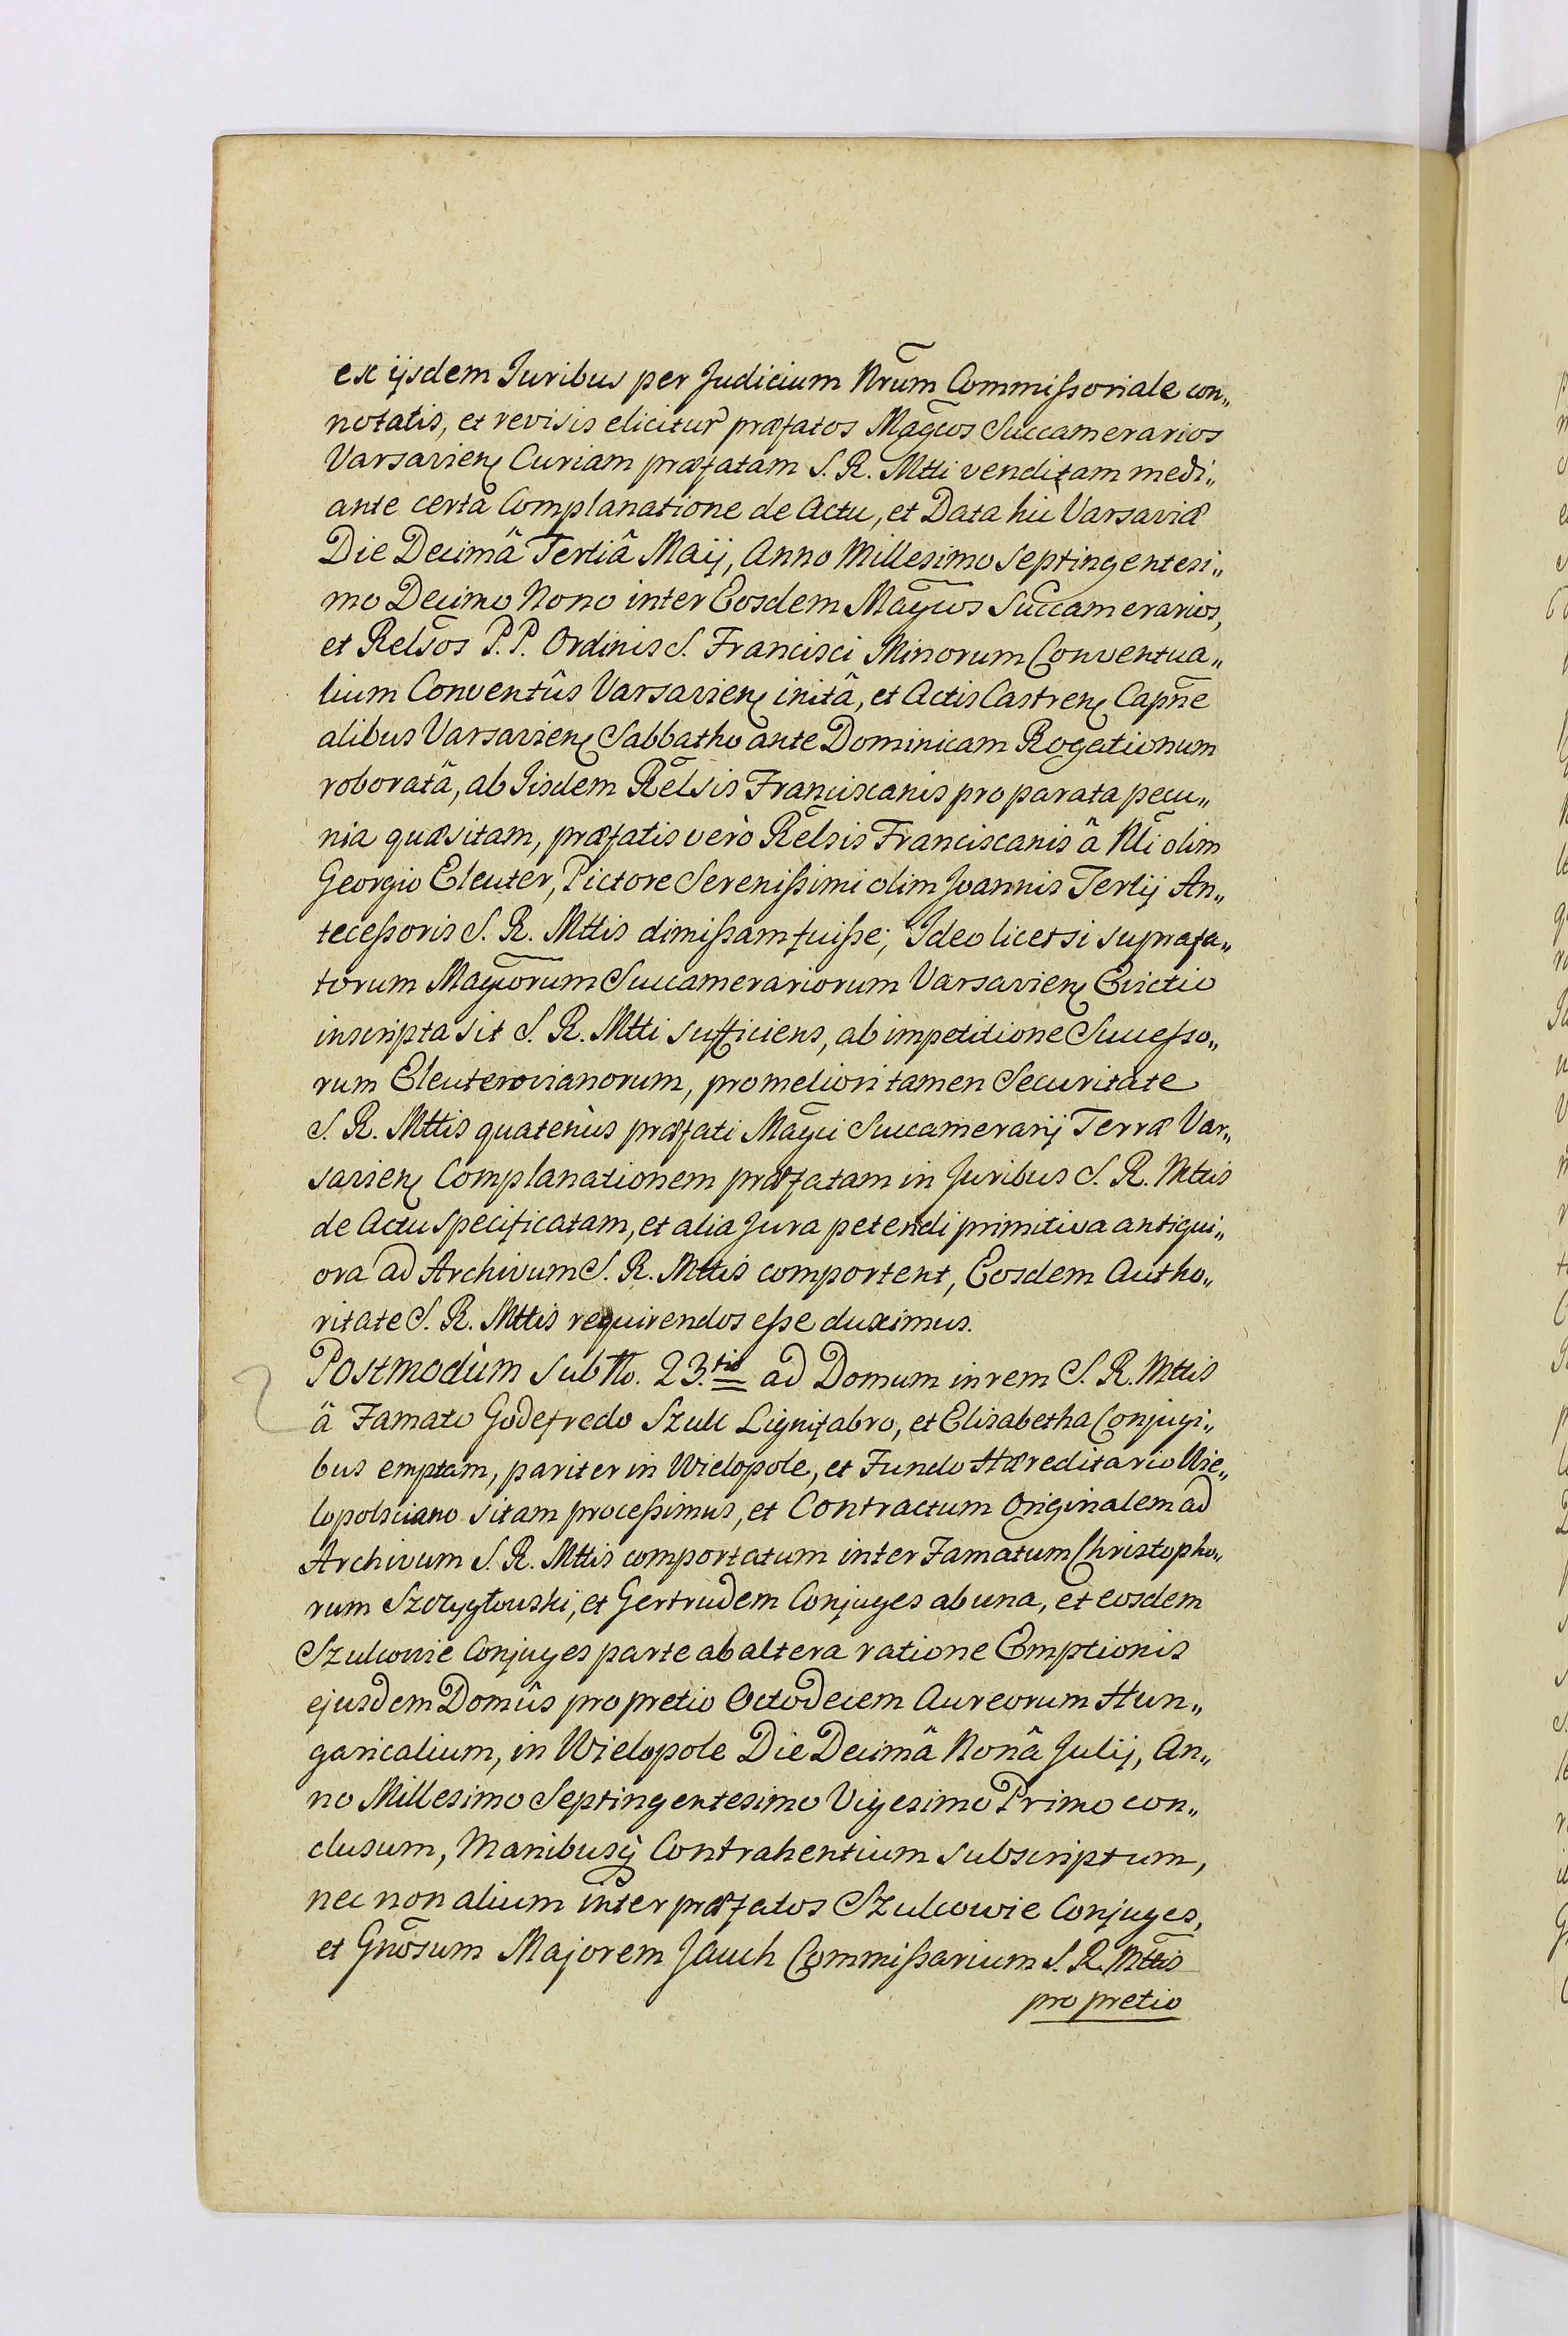 ex ijsdem Juribus per Judicium Nrūm Commissoriale con„
notatis, et revisis elicitur præfatos Magcos Succamerarios
Varsavien Curiam præfatam S. R. Mtti venditam medi„
ante certa Complanatione de Actu, et Data hic Varsaviæ
Die Decimâ Tertiâ Maij, Anno Millesimo Septingentesi„
mo Decimo Nono inter Eosdem Magcos Succamerarios,
et Relsos P.P. Ordinis S. Francisci Minorum Conventua„
lium Conventûs Varsavien initâ, et Actis Castren Capne
alibus Varsavien Sabbatho ante Dominicam Rogationum
roboratâ, ab Iisdem Relsis Franciscanis pro parata pecu„
nia quæsitam, præfatis verò Relsis Franciscanis â Nli olim
Georgio Eleuter, Pictore Serenissimi olim Joannis Tertij An„
tecessoris S. R. Mttis dimissam fuisse; Ideo licet si suprafa„
torum Magcorum Succamerariorum Varsavien Evictio
inscripta sit S. R. Mtti sufficiens, ab impetitione Successo„
rum Eleuterovianorum, pro meliori tamen Securitate
S. R. Mttis quatenùs præfati Magci Succamerarij Terræ Var„
savien Complanationem præfatam in Juribus S. R. Mttis
de Actu specificatam, et alia Jura petendi primitiva antiqui„
ora ad Archivum S. R. Mttis comportent, Eosdem Autho„
ritate S. R. Mttis requirendos esse duximus.
Postmodùm sub No. 23.tio ad Domum in rem S. R. Mttis
â Famato Godefredo Szulc Lignifabro, et Elisabetha Conjugi„
bus emptam, pariter in Wielopole, et Fundo Hæreditario Wie„
lopolsciano sitam processimus, et Contractum Originalem ad
Archivum S. R. Mttis comportatum inter Famatum Christopho„
rum Szczygłowski, et Gertrudem Conjuges ab una, et eosdem
Szulcowie Conjuges parte ab altera ratione Emptionis
ejusdem Domûs pro pretio Octodecem Aureorum Hun„
garicalium, in Wielopole Die Decimâ Nonâ Julij, An„
no Millesimo Septingentesimo Vigesimo Primo con„
clusum, Manibusq Contrahentium subscriptum,
nec non alium inter præfatos Szulcowie Conjuges,
et Gnosum Majorem Jauch Commissarium S. R. Mttis
pro pretio